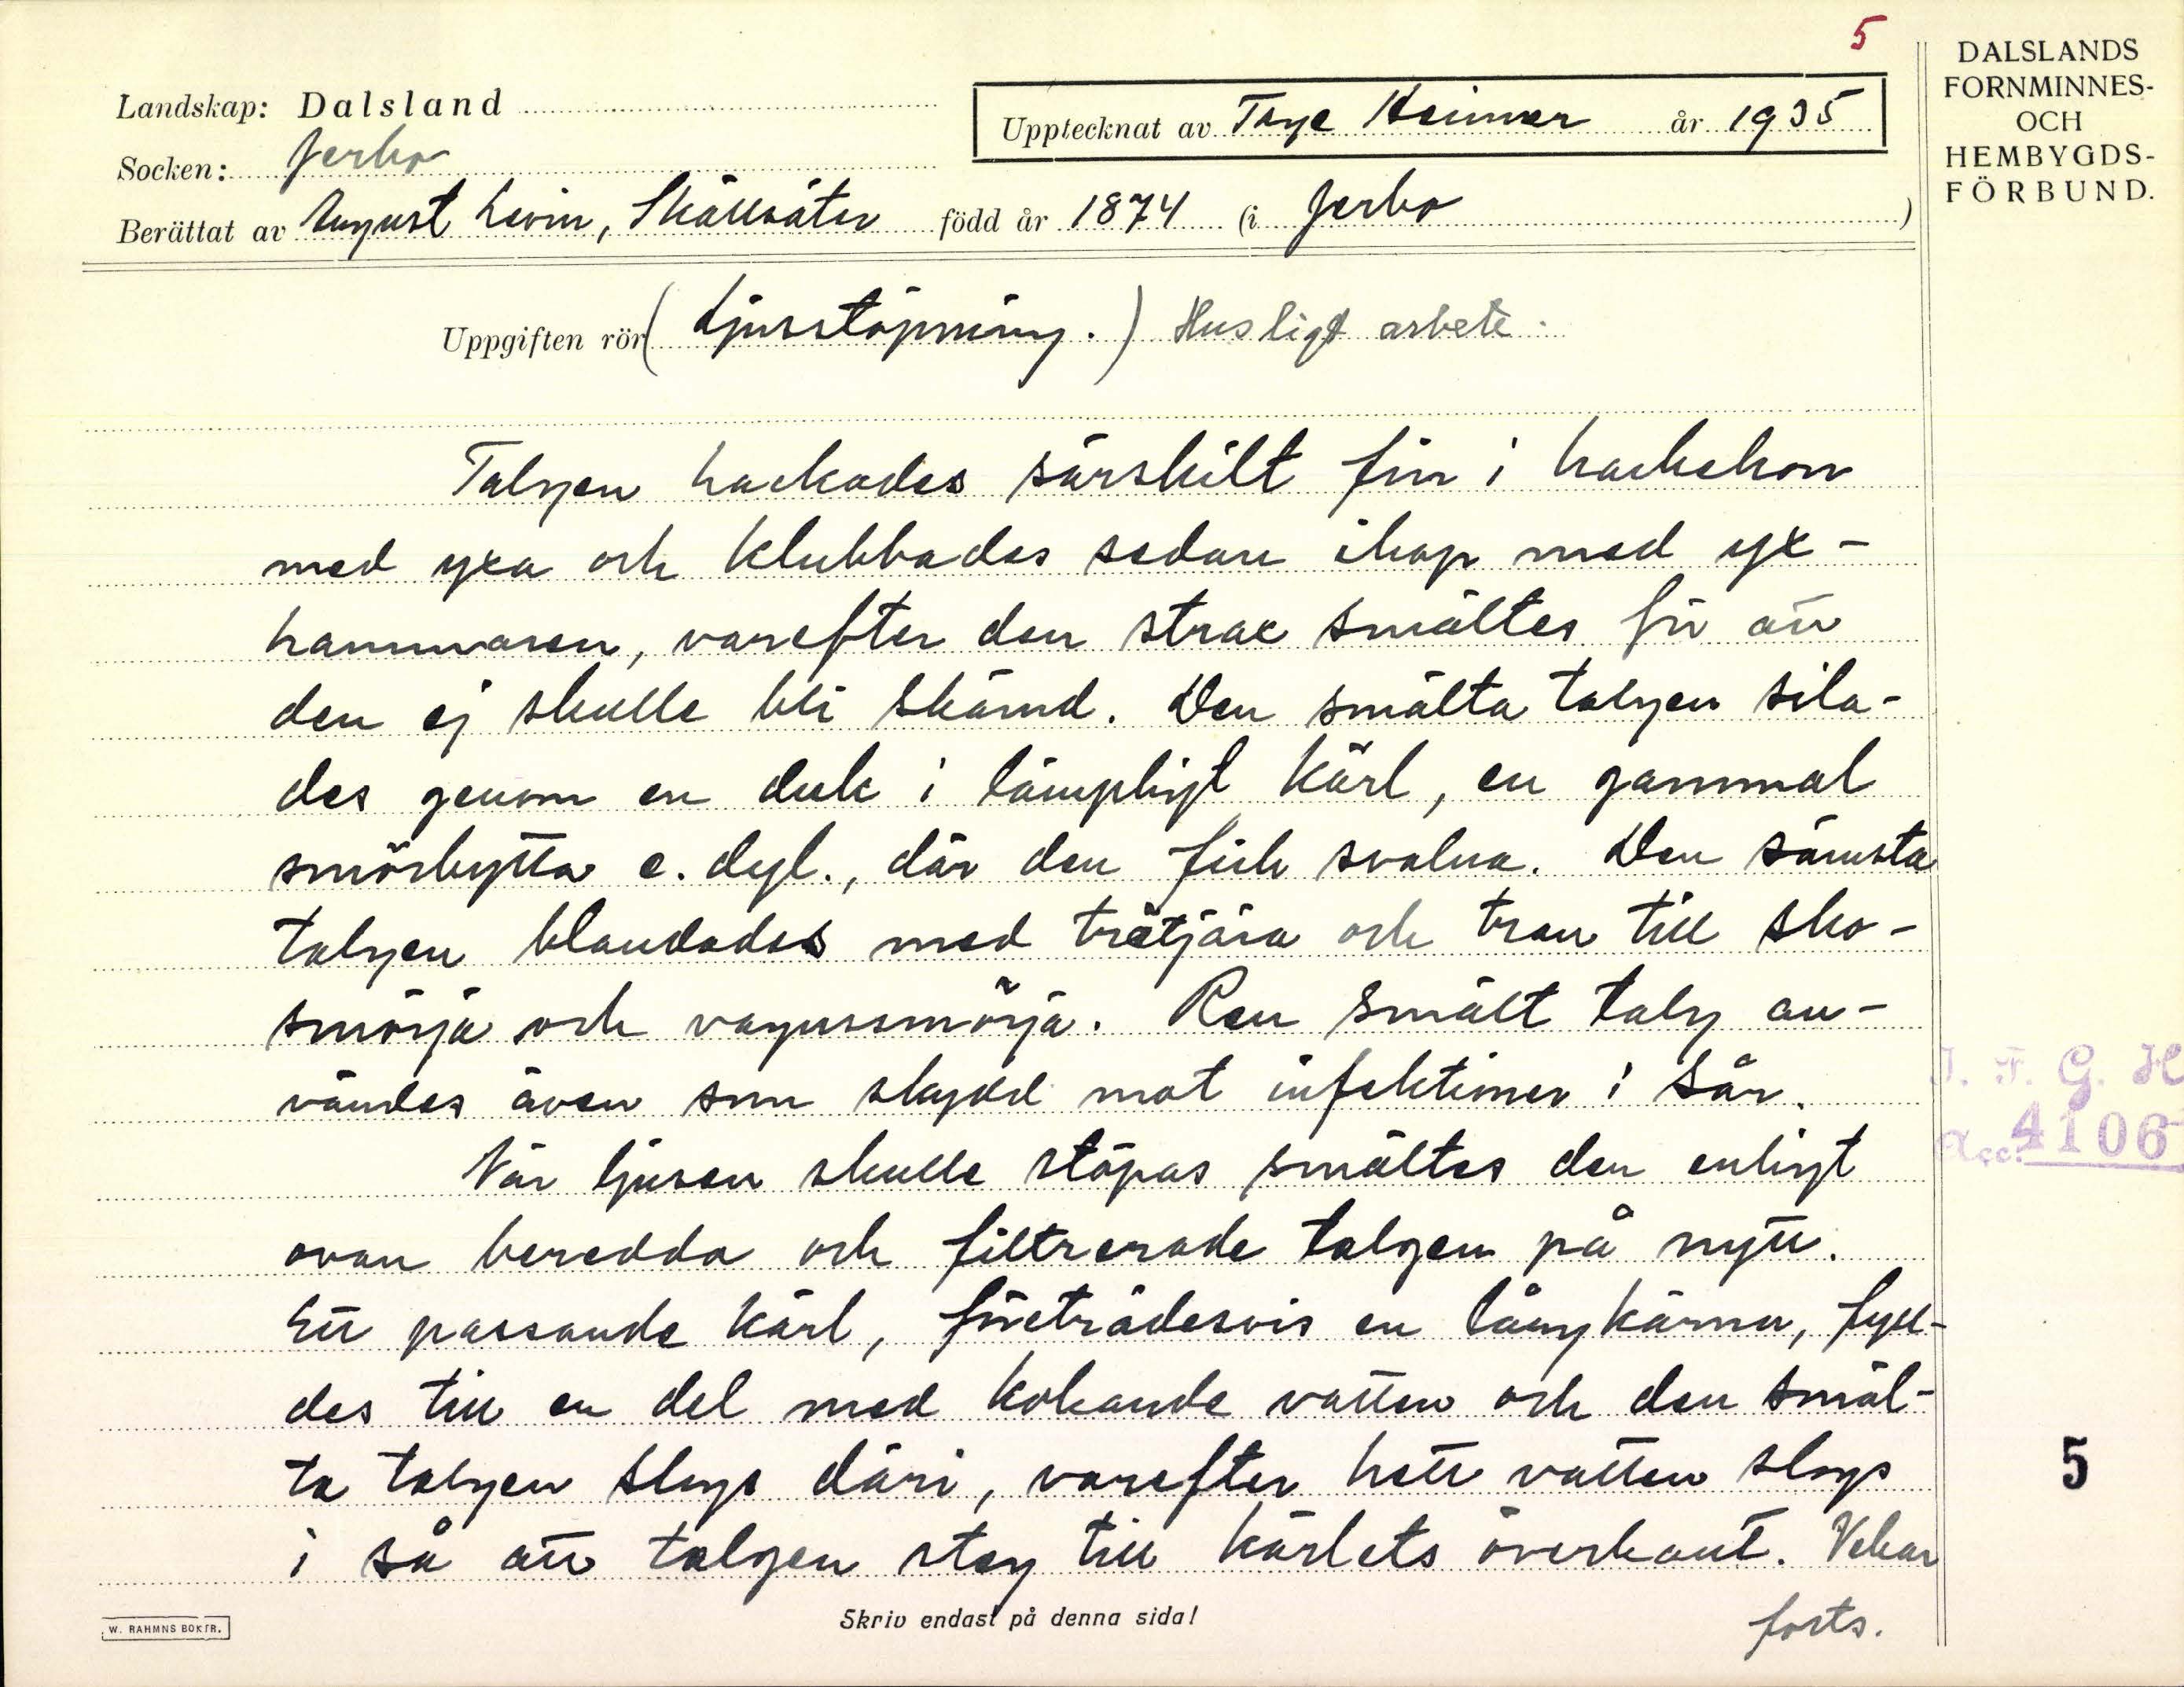 5
DALSLANDS
FORNMINNES-
OCH
HEMBYGDS-
FÖRBUND.
Landskap: Dalsland
Upptecknat av Tage Heimer år 1935
Socken: Jerbo
Berättat av August Levin, Skällsäter född år 1874 (i Jerbo )
Uppgiften rör (Ljusstöpning.) Husligt arbete.
Talgen hackades särskilt fin i hackehon
med yxa och klubbades sedan ihop med yx-
hammaren, varefter den strax smältes för att
den ej skulle bli skämd. Den smälta talgen sila-
des genom en duk i lämpligt kärl, en gammal
smörbytta e. dyl., där den fick svalna. Den sämsta
talgen blandades med trätjära och tran till sko-
smörja och vagnssmörja. Ren smält talg an-
vändes även som skydd mot infektioner i sår.
När ljusen skulle stöpas smältes den enligt
ovan beredda och filtrerade talgen på nytt.
Ett passande kärl, företrädesvis en långkärna, fyll-
des till en del med kokande vatten och den smäl-
ta talgen slogs däri, varefter hett vatten slogs
i så att talgen steg till kärlets överkant. Vekar
forts.
I. F. G. H
Acc. 4106
5
Skriv endast på denna sida!
W. RAHMNS BOKTR.